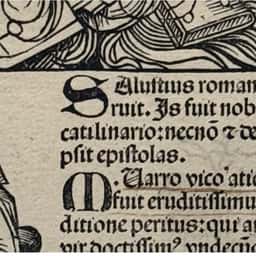 SAlustius roman
ruit. Is fuit nob
catilinario: necnō ⁊ de
psit epistolas.
M. Uarro vico atic
fuit eruditissimu
ditione peritus: qui an
vir doctissimꝰ vndecū